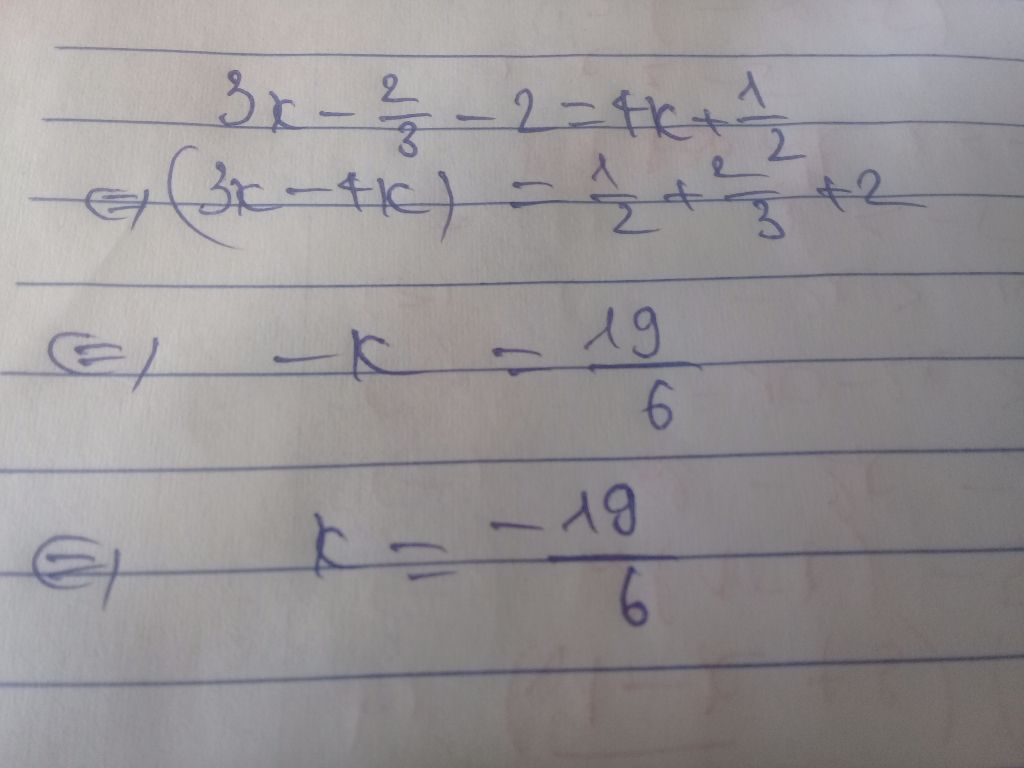 3x - 2/3 - 2 = 4x + 1/2
⇔ (3x - 4x) = 1/2 + 2/3 + 2
⇔ -x = 19/6
⇔ x = -19/6